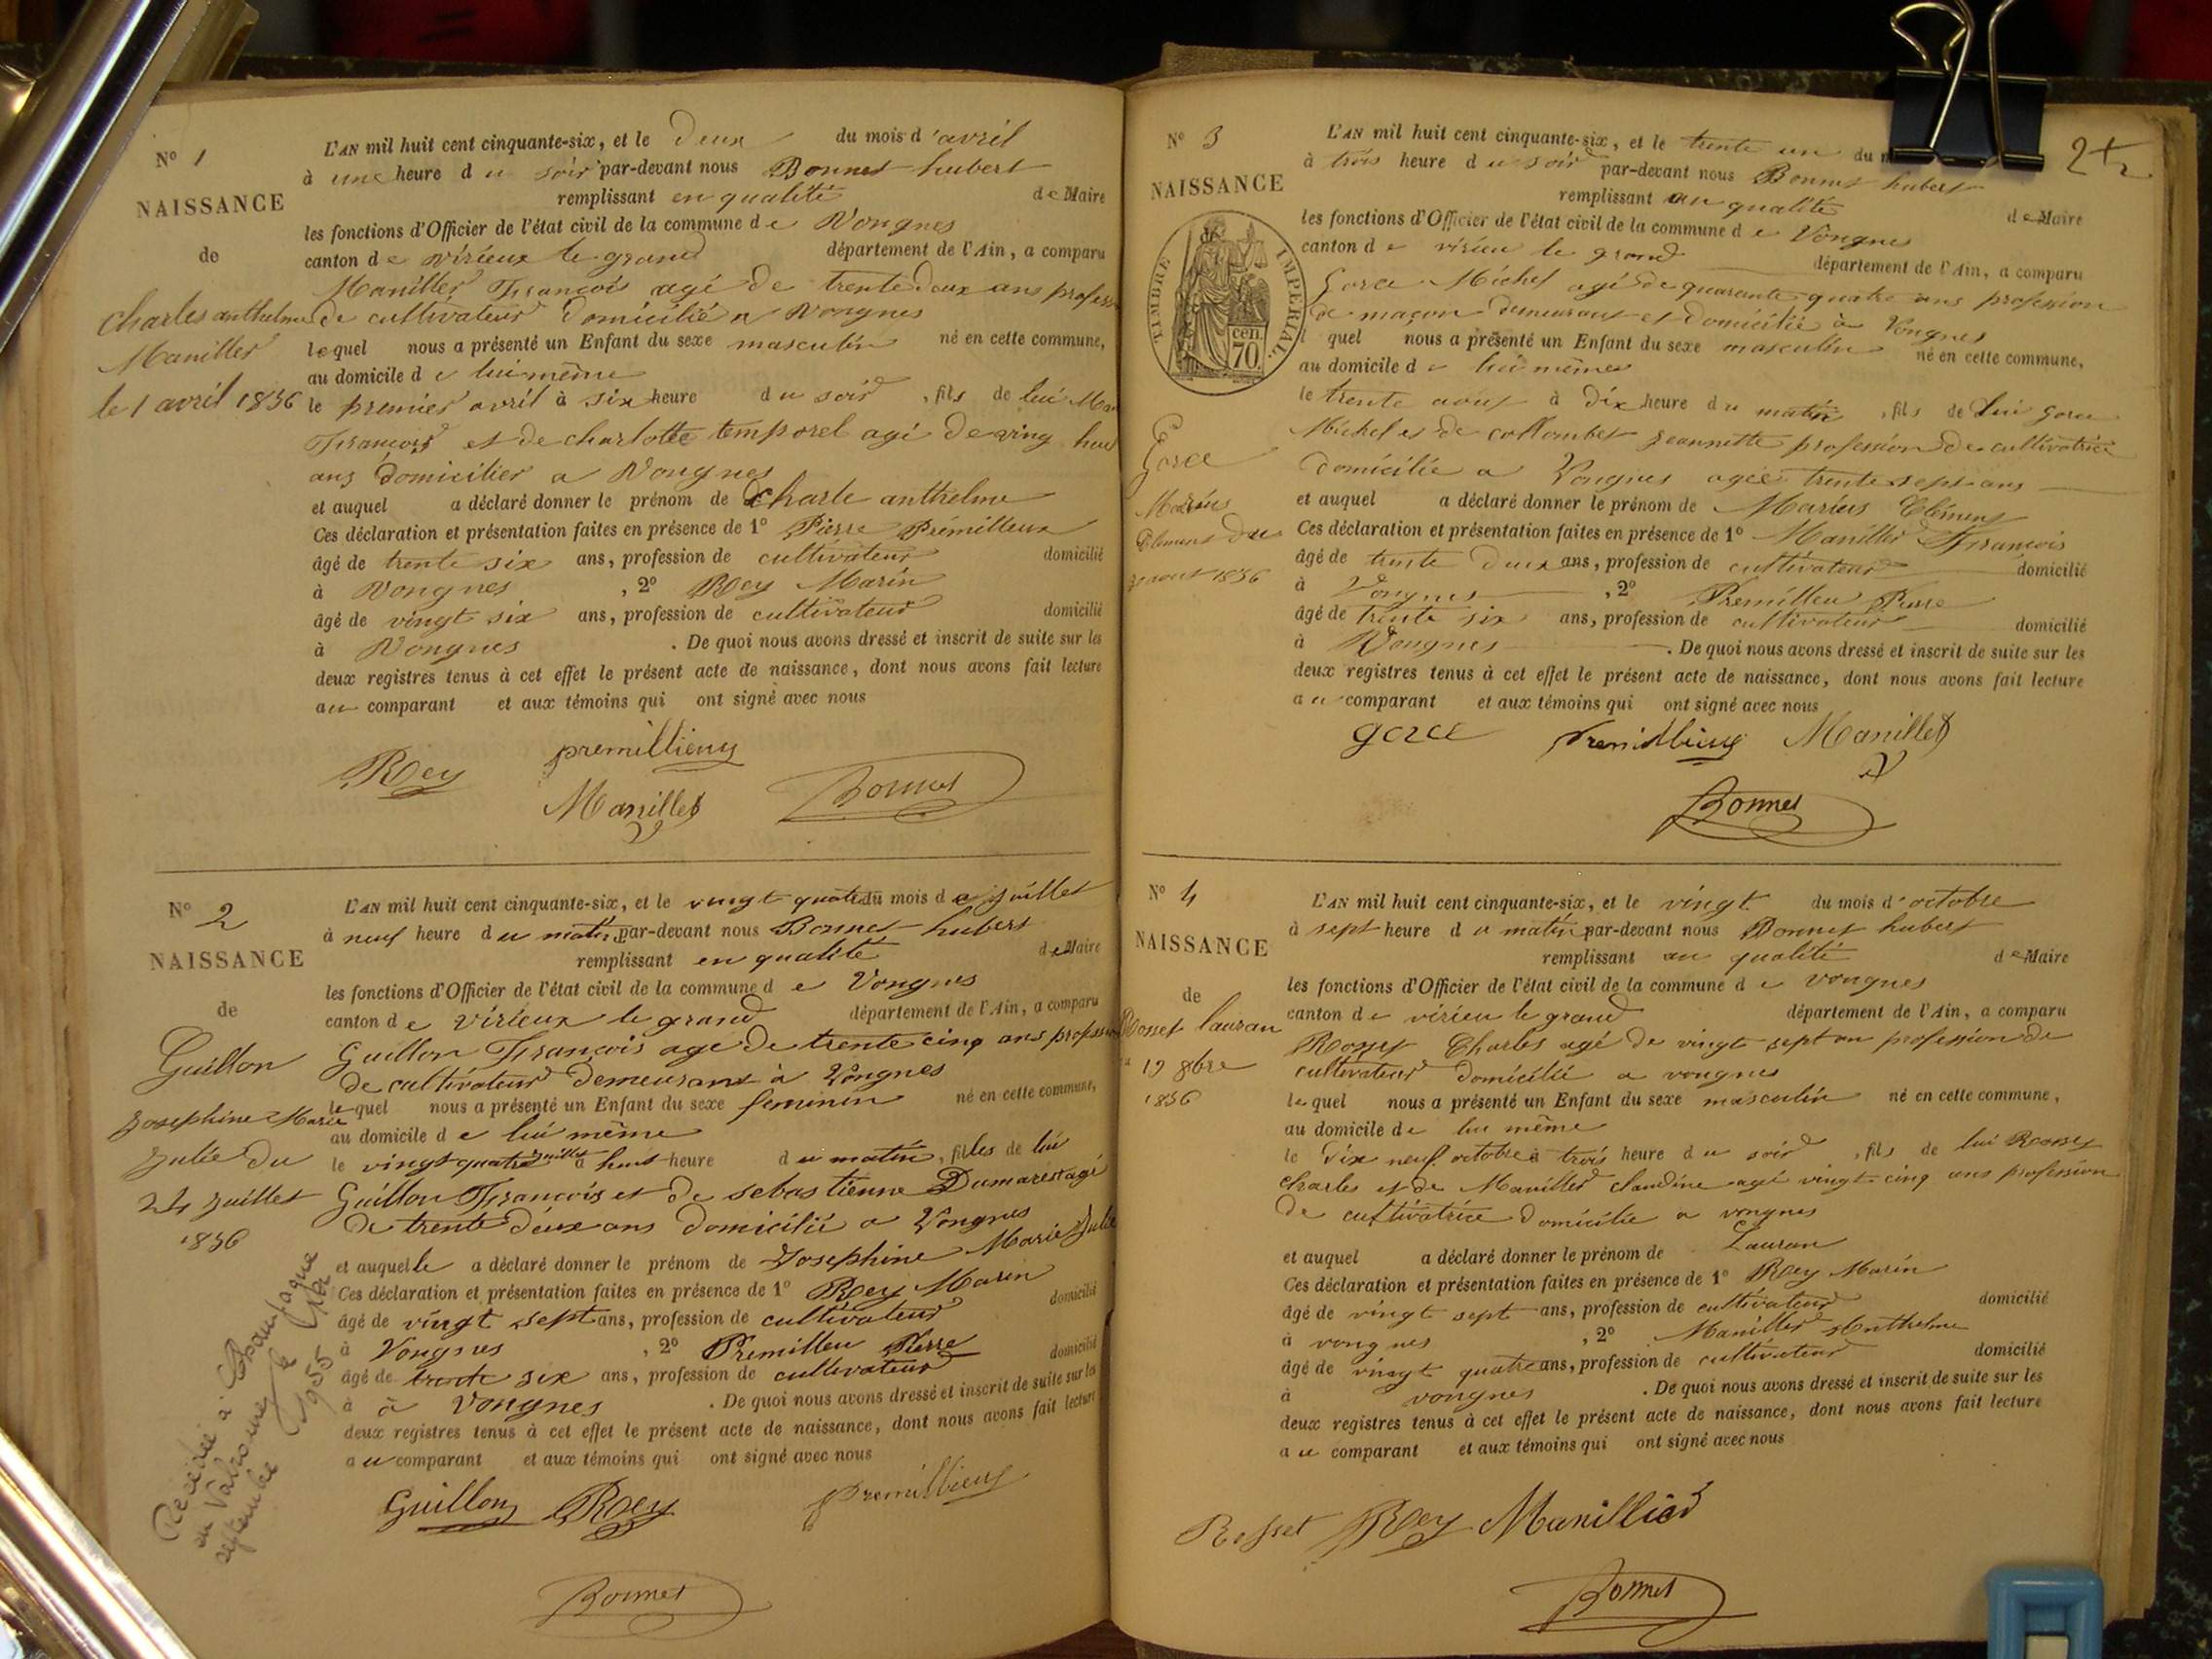 N° 1
NAISSANCE
de
Charles anthelme
Maniller
le 1 avril 1856
L'AN mil huit cent cinquante-six, et le Deux du mois d'avril
à une heure du soir par-devant nous Bonnet hubert
remplissant en qualité de Maire
les fonctions d'Officier de l'état civil de la commune de Vongnes
canton de virieux le grand département de l'Ain, a comparu
Maniller François agé de trente deux ans profess
de cultivateur Domicilié a Vongnes
lequel nous a présenté un Enfant du sexe masculin né en cette commune,
au domicile de lui même
le premier avril à six heure du soir, fils de lui Man
François et de charlotte temporel agé de ving huit
ans domicilier a Vongnes
et auquel a déclaré donner le prénom de charle anthelme
Ces déclaration et présentation faites en présence de 1° Pierre Prémilleux
âgé de trente six ans, profession de cultivateur domicilié
à Vongnes, 2° Rey Marin
âgé de vingt six ans, profession de cultivateur domicilié
à Vongnes. De quoi nous avons dressé et inscrit de suite sur les
deux registres tenus à cet effet le présent acte de naissance, dont nous avons fait lecture
au comparant et aux témoins qui ont signé avec nous
Rey premillieux
Maniller Bonnet
N° 2
NAISSANCE
de
Guillon
Josephine Marie
Julie du
24 Juillet
1856
Décédée à Champagne
en Valromey le
septembre 1955
L'AN mil huit cent cinquante-six, et le vingt quatre du mois de Juillet
à neuf heure du matin par-devant nous Bonnet hubert
remplissant en qualité de Maire
les fonctions d'Officier de l'état civil de la commune de Vongnes
canton de virieux le grand département de l'Ain, a comparu
Guillon François age de trente cinq ans profession
de cultivateur Demeurant à Vongnes
lequel nous a présenté un Enfant du sexe feminin né en cette commune,
au domicile de lui même
le vingt quatre juillet à huit heure du matin, filles de lui
Guillon François et de sebastienne Dumarest agé
de trente deux ans domicilié a Vongnes
et auquelle a déclaré donner le prénom de Josephine Marie Julie
Ces déclaration et présentation faites en présence de 1° Rey Marin
âgé de vingt sept ans, profession de cultivateur domicilié
à Vongnes, 2° Premilleu Pierre
âgé de trente six ans, profession de cultivateur domicilié
à à Vongnes. De quoi nous avons dressé et inscrit de suite sur les
deux registres tenus à cet effet le présent acte de naissance, dont nous avons fait lecture
au comparant et aux témoins qui ont signé avec nous
Guillon Rey Premillieux
Bonnet
N° 3
NAISSANCE
de
TIMBRE IMPERIAL.
cen.
70.
Gorce
Marius
Clement Du
30 aout 1856
L'AN mil huit cent cinquante-six, et le trente un du m
à trois heure du soir par-devant nous Bonnet hubert
remplissant en qualité de Maire
les fonctions d'Officier de l'état civil de la commune de Vongnes
canton de virieu le grand département de l'Ain, a comparu
Gorce Michel agé de quarante quatre ans profession
de maçon demeurant et domicilié à Vongnes
l quel nous a présenté un Enfant du sexe masculin né en cette commune,
au domicile de lui même
le trente aout à dix heure du matin, fils de Lui gorce
Michel et de collombet jeannette profession de cultivatrice
domicilié a Vongnes agée trente sept ans
et auquel a déclaré donner le prénom de Marius Clément
Ces déclaration et présentation faites en présence de 1° Maniller François
âgé de trente deux ans, profession de cultivateur domicilié
à Vongnes, 2° Premilleu Pierre
âgé de trente six ans, profession de cultivateur domicilié
à Vongnes. De quoi nous avons dressé et inscrit de suite sur les
deux registres tenus à cet effet le présent acte de naissance, dont nous avons fait lecture
au comparant et aux témoins qui ont signé avec nous
gorce Premillieux Maniller
Bonnet
N° 4
NAISSANCE
de
Rosset Lauran
19 8bre
1856
L'AN mil huit cent cinquante-six, et le vingt du mois d'octobre
à sept heure du matin par-devant nous Bonnet hubert
remplissant en qualité de Maire
les fonctions d'Officier de l'état civil de la commune de vongnes
canton de virieu le grand département de l'Ain, a comparu
Rosset Charles agé de vingt sept an profession de
cultivateur domicilié a vongnes
lequel nous a présenté un Enfant du sexe masculin né en cette commune,
au domicile de lui même
le dix neuf octobre à trois heure du soir, fils de lui Rosset
charles et de Maniller claudine agé vingt-cinq ans profession
de cultivatrice domicilie a vongnes
et auquel a déclaré donner le prénom de Lauran
Ces déclaration et présentation faites en présence de 1° Rey Marin
âgé de vingt sept ans, profession de cultivateur domicilié
à vongnes, 2° Maniller Anthelme
âgé de vingt quatre ans, profession de cultivateur domicilié
à vongnes. De quoi nous avons dressé et inscrit de suite sur les
deux registres tenus à cet effet le présent acte de naissance, dont nous avons fait lecture
au comparant et aux témoins qui ont signé avec nous
Rosset Rey Manillier
Bonnet